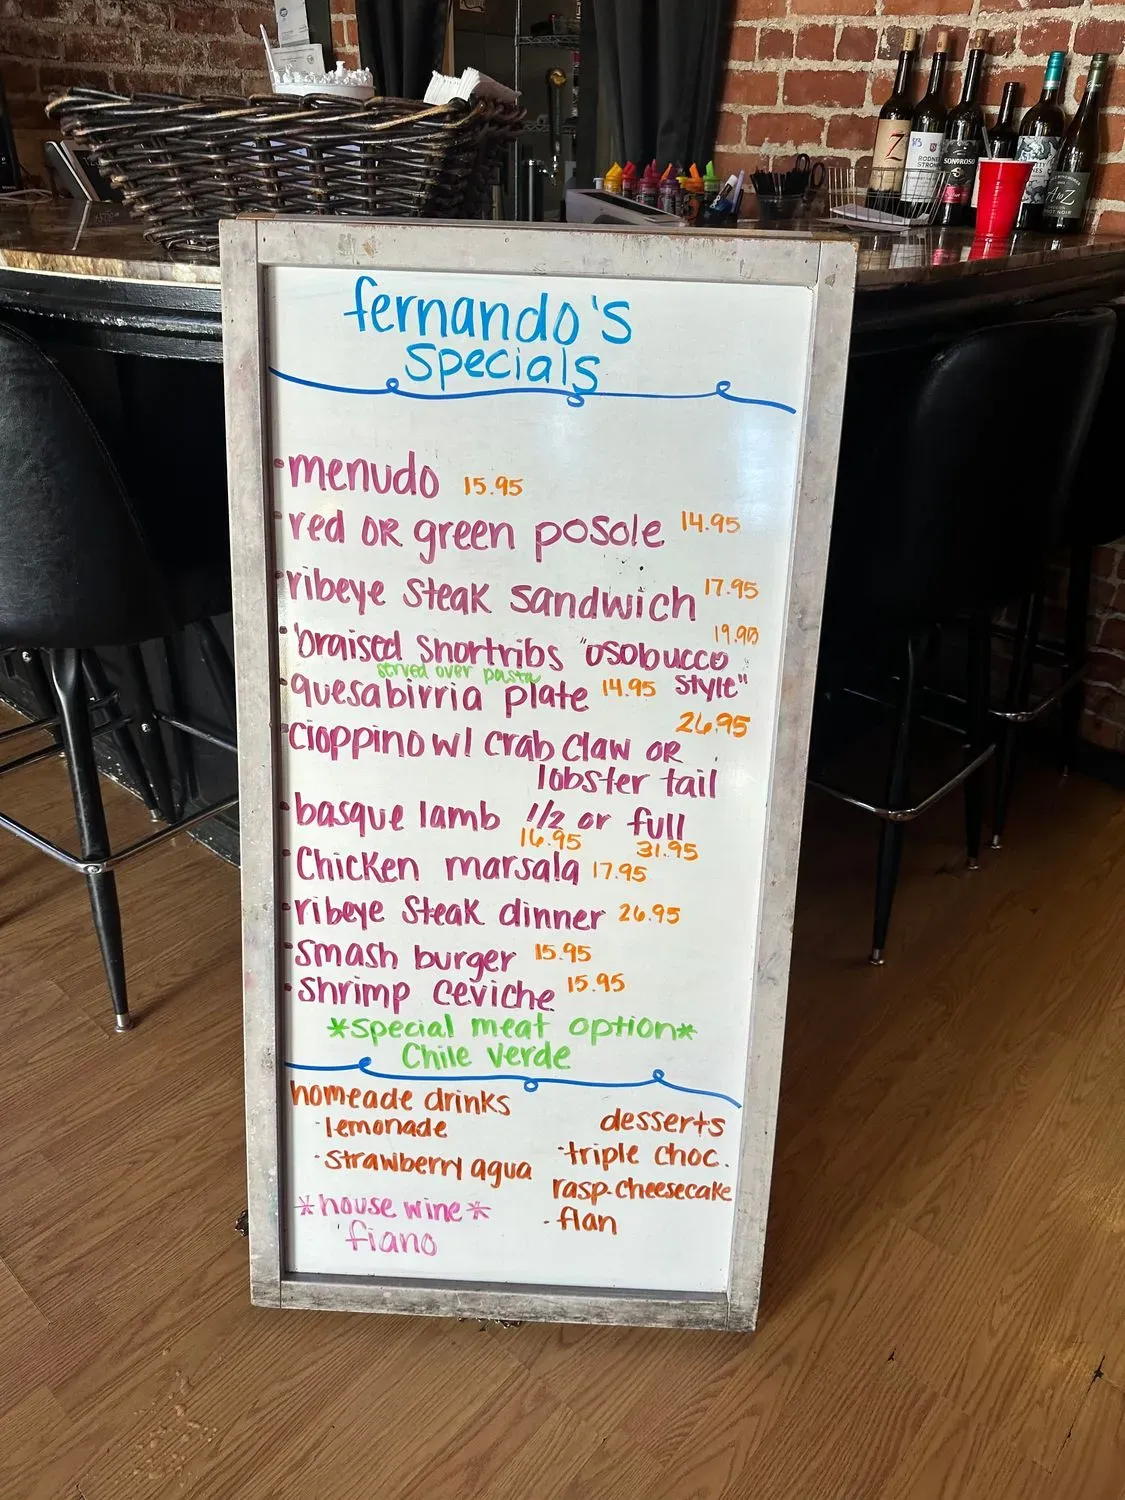 fernando's
specials
menudo 15.95
red OR green posole 14.95
ribeye steak sandwich 17.95
braised shortribs "osobucco style" 19.90
served over pasta
quesabirria plate 14.95
cioppino w/ crab claw OR 26.95
lobster tail
basque lamb 1/2 or full
16.95 31.95
Chicken marsala 17.95
ribeye steak dinner 26.95
smash burger 15.95
shrimp ceviche 15.95
*special meat option*
Chile verde
homeade drinks
·lemonade
·strawberry agua
*house wine*
fiano
desserts
·triple choc.
rasp.cheesecake
·flan
Z
RODNEY
SONOROSO
AtoZ
PINOT NOIR